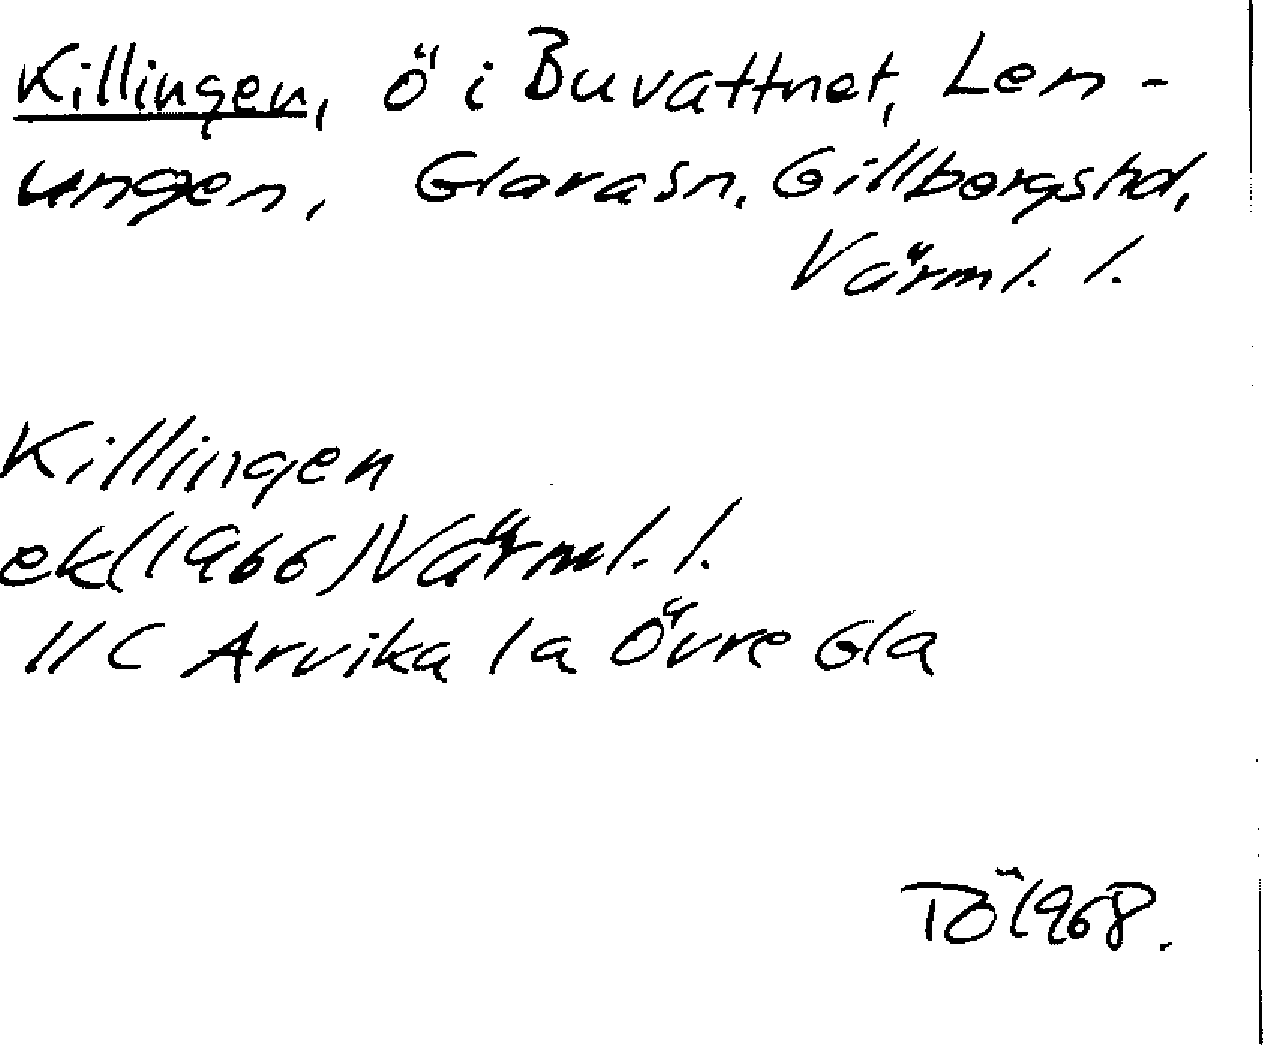 Killingen, ö i Buvattnet, Len-
ungen, Glava sn, Gillbergshd,
Värml. l.
Killingen
ek (1966) Värml. l.
11C Arvika 1a Övre Gla
TÖ 1968.